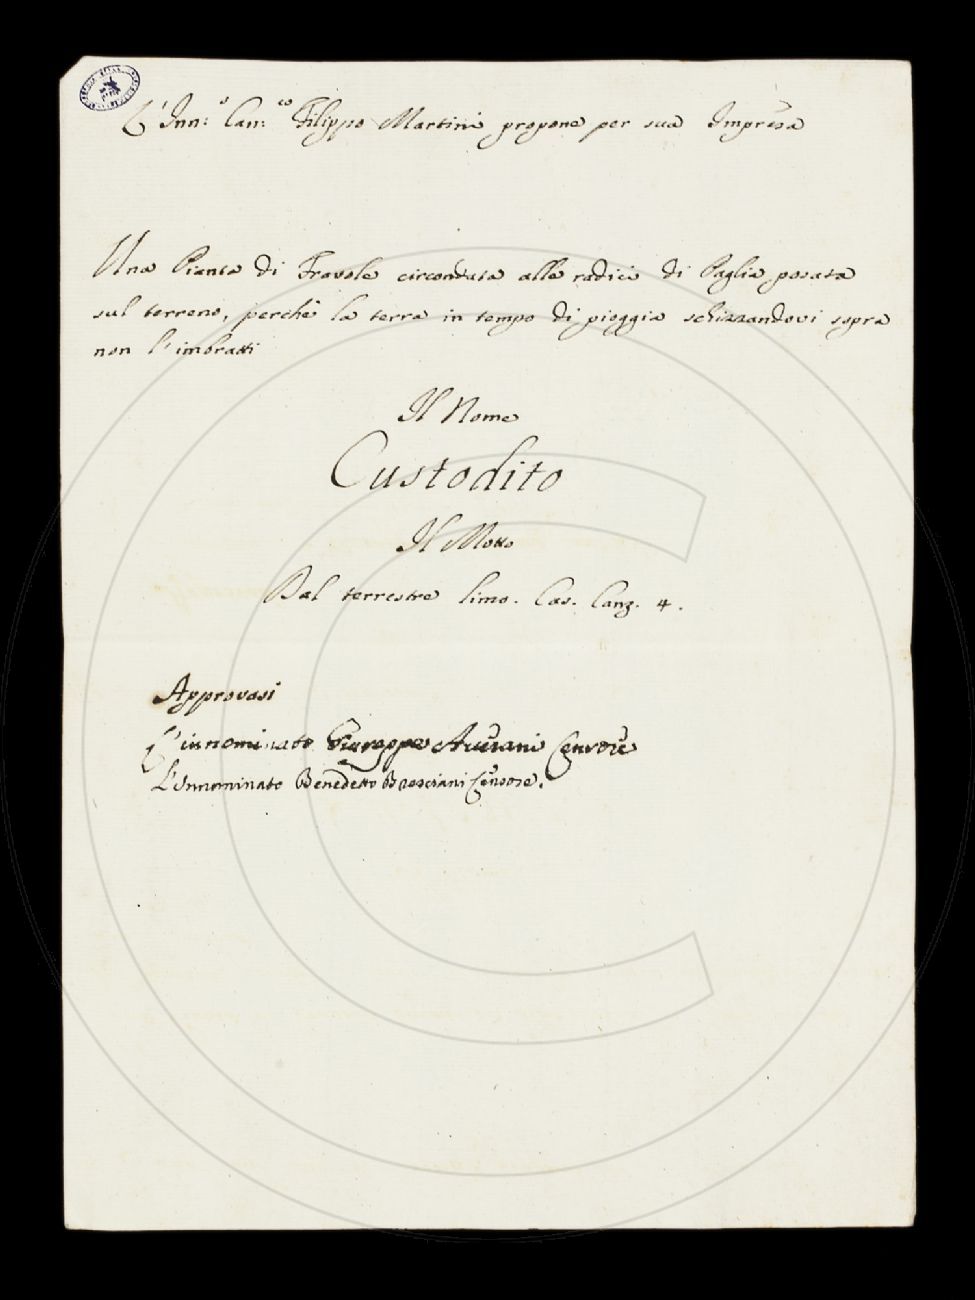 L'Inn:o Can:co Filippo Martini propone per sua Impresa
Una Pianta di Fravole circondata alle radici di Paglia posata
sul terreno, perchè la terra in tempo di pioggia schizzandovi sopra
non l'imbratti
Il Nome
Custodito
Il Motto
Dal terrestre limo. Cas. Canz. 4.
Approvasi
L'innominato Giuseppe Averani Censore
L'Innominato Benedetto Bresciani Censore.